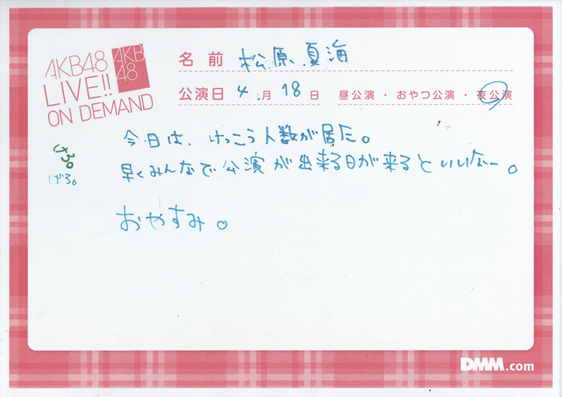 AKB48
LIVE!!
ON DEMAND
AKB
48
名前 松原夏海
公演日 4月18日 昼公演・おやつ公演・夜公演
今日は、けっこう人数が居た。
早くみんなで公演が出来る日が来るといいなー。
おやすみ。
DMM.com